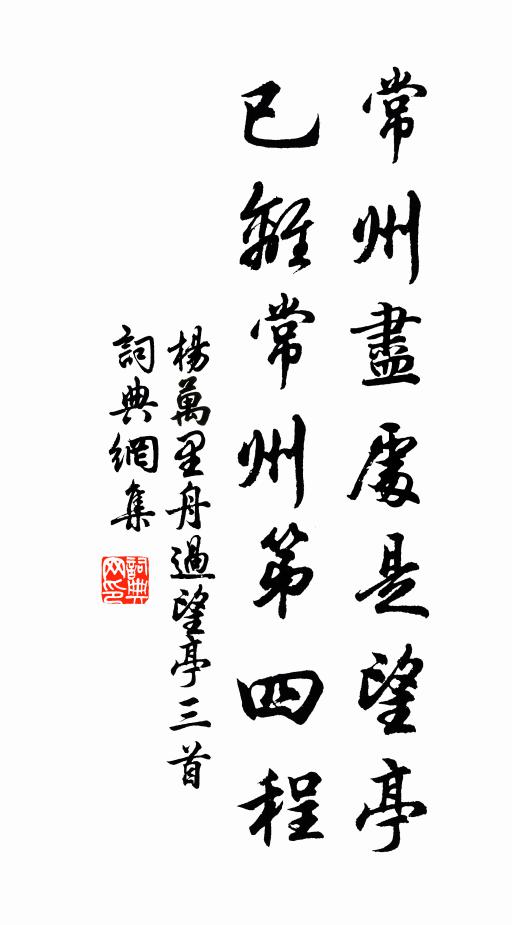 常州盡處是望亭
已離常州第四程
楊萬里舟過望亭三首
詞典網集
詞典网印